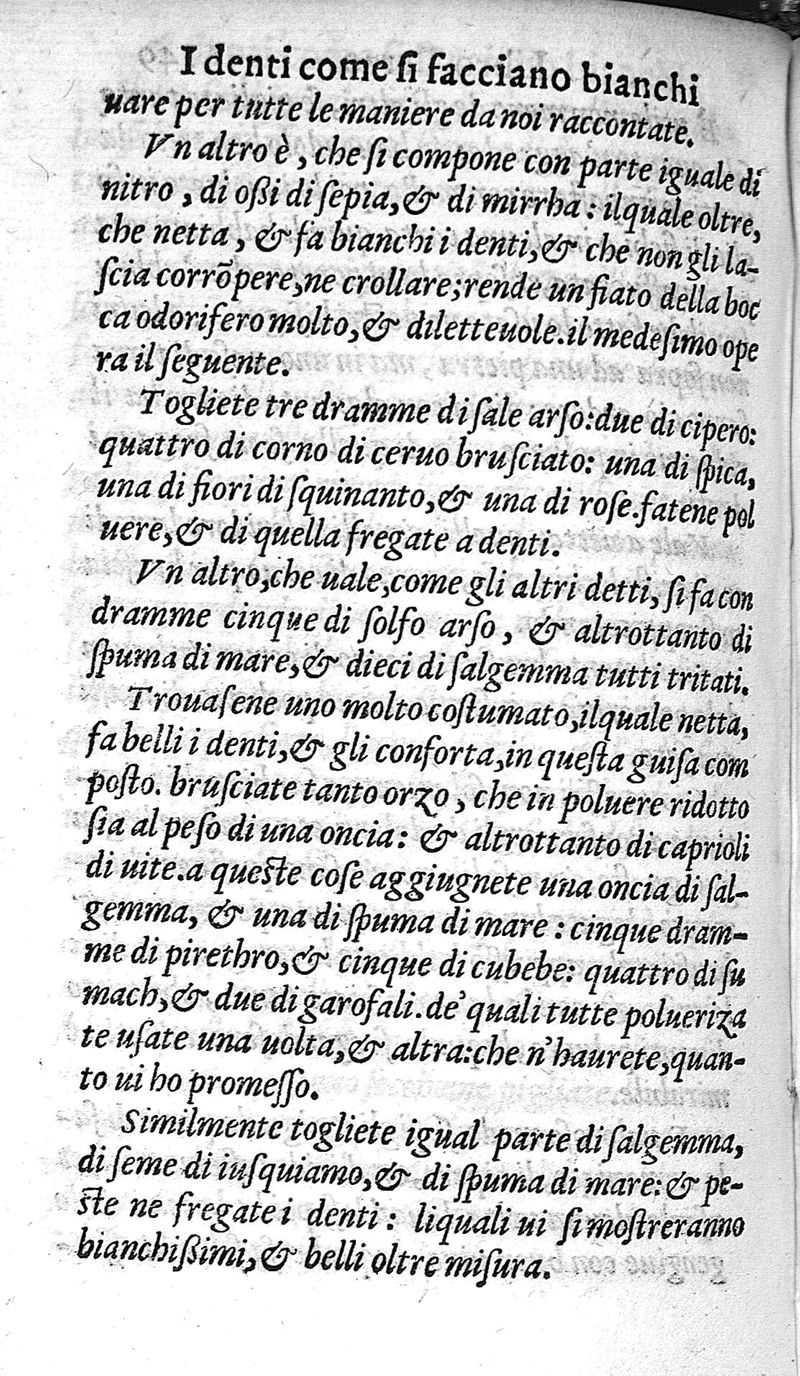 I denti come ſi facciano bianchi
uare per tutte le maniere da noi raccontate.
Vn altro è, che ſi compone con parte iguale di
nitro, di oßi di ſepia,& di mirrha: ilquale oltre,
che netta, & fa bianchi i denti,& che non gli la-
ſcia corrõpere,ne crollare;rende un fiato della boc
ca odorifero molto,& diletteuole.il medeſimo ope
ra il ſeguente.
Togliete tre dramme di ſale arſo:due di cipero:
quattro di corno di ceruo bruſciato: una di ſpica,
una di fiori di ſquinanto,& una di roſe.fatene pol
uere,& di quella fregate a denti.
Vn altro,che uale,come gli altri detti, ſi fa con
dramme cinque di ſolfo arſo, & altrottanto di
ſpuma di mare,& dieci di ſalgemma tutti tritati.
Trouaſene uno molto coſtumato,ilquale netta,
fa belli i denti,& gli conforta,in queſta guiſa com
poſto. bruſciate tanto orzo, che in poluere ridotto
ſia al peſo di una oncia: & altrottanto di caprioli
di uite.a queſte coſe aggiugnete una oncia di ſal-
gemma, & una di ſpuma di mare: cinque dram-
me di pirethro,& cinque di cubebe: quattro di ſu
mach,& due di garofali.de' quali tutte polueriza
te uſate una uolta,& altra:che n'haurete,quan-
to ui ho promeſſo.
Similmente togliete igual parte di ſalgemma,
di ſeme di iuſquiamo,& di ſpuma di mare:& pe-
ſte ne fregate i denti: liquali ui ſi moſtreranno
bianchißimi,& belli oltre miſura.